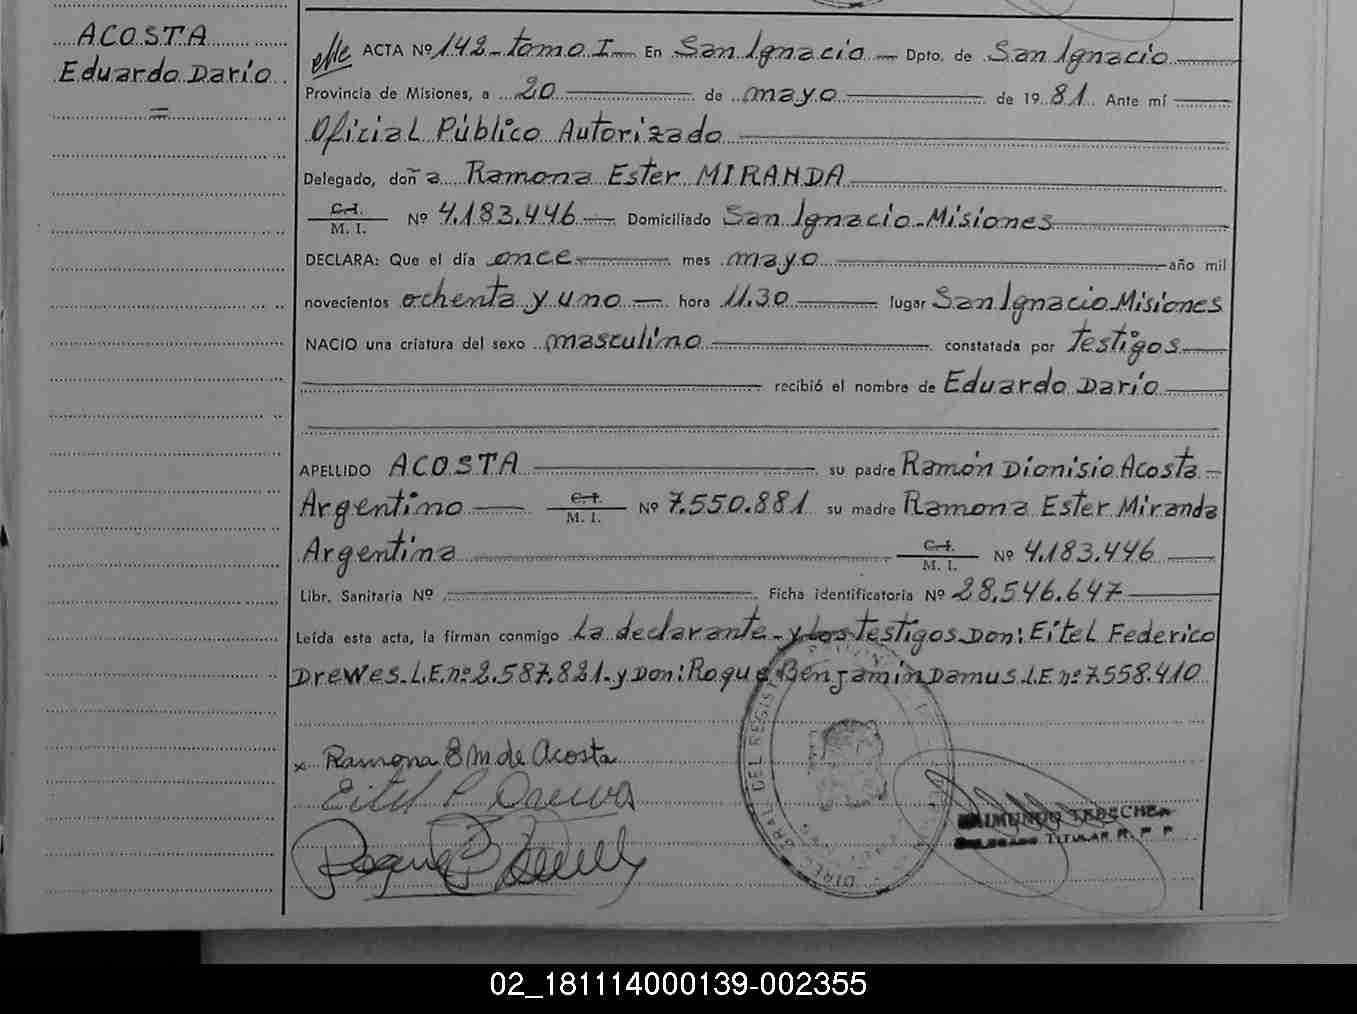 ACOSTA
Eduardo Darío
ACTA Nº 142 - tomo I - En San Ignacio - Dpto. de San Ignacio
Provincia de Misiones, a 20 de mayo de 19 81 Ante mí
Oficial Público Autorizado
Delegado, doña Ramona Ester MIRANDA
C.I. M. I. Nº 4.183.446 Domiciliado San Ignacio - Misiones
DECLARA: Que el día once mes mayo año mil
novecientos ochenta y uno - hora 11.30 lugar San Ignacio Misiones
NACIO una criatura del sexo masculino constatada por testigos
recibió el nombre de Eduardo Darío
APELLIDO ACOSTA su padre Ramón Dionisio Acosta -
Argentino C.I. M. I. Nº 7.550.881 su madre Ramona Ester Miranda
Argentina C.I. M. I. Nº 4.183.446
Libr. Sanitaria Nº Ficha identificatoria Nº 28.546.647
Leída esta acta, la firman conmigo la declarante - y los testigos Don: Eitel Federico
Drewes. L.E. nº 2.587.821 - y Don: Roque Benjamín Damus. L.E. nº 7.558.410
x Ramona E M de Acosta
RAIMUNDO
DELEGADO TITULAR R. P. P.
02_181114000139-002355